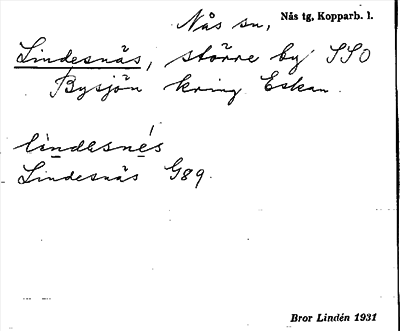 Nås sn, Nås tg, Kopparb. l.
Lindesnäs, större by SSO
Bysjön kring Eskan.
lindesnés
Lindesnäs G89.
Bror Lindén 1931